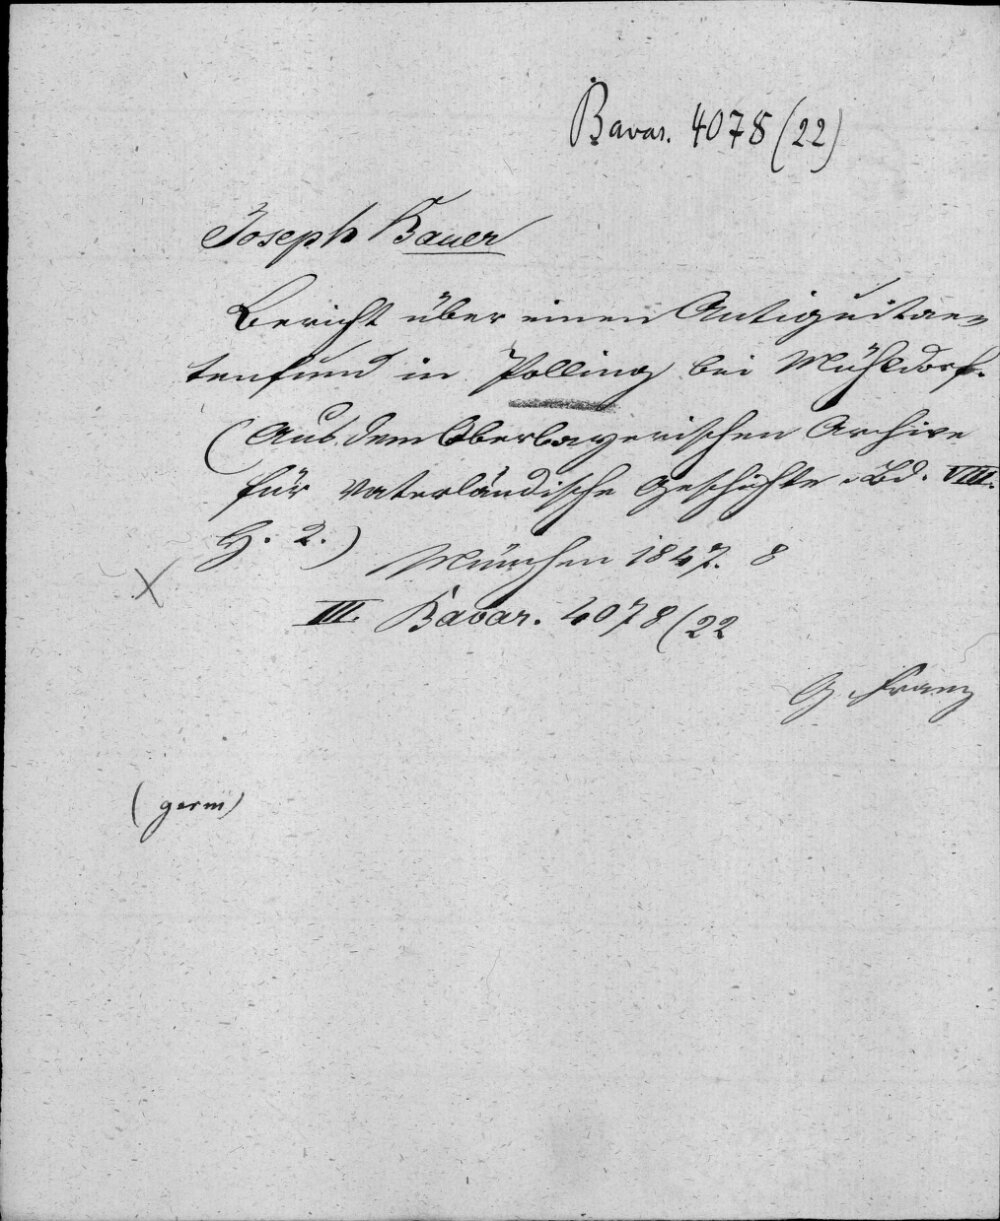 Bavar. 4078 (22)
Joseph Bauer
Bericht über einen Antiquitae-
tenfund in Polling bei Mühldorf.
(Aus dem Oberbayerischen Archive
für vaterländische Geschichte. Bd. VIII.
H. 2.) München 1847. 8
X
III. Bavar. 4078 (22
G. Franz
(germ)